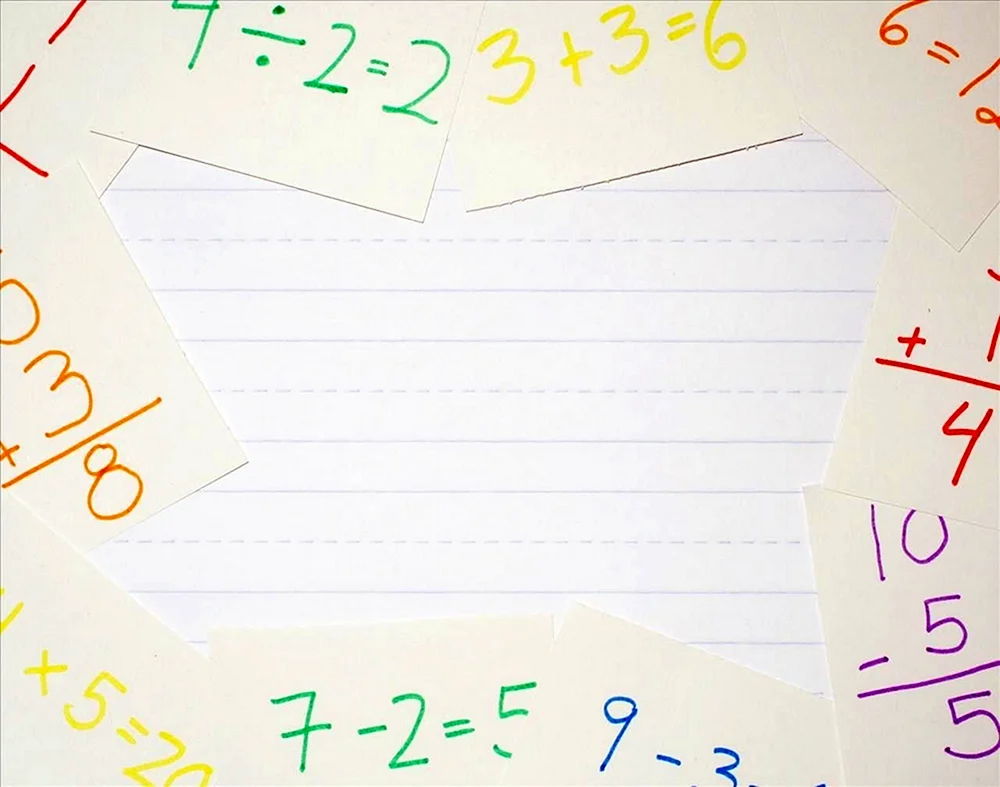 4 ÷ 2 = 2
3 + 3 = 6
6 =
3
+
8
+ 1
4
10
- 5
5
+ 5 = 20
7 - 2 = 5
9 - 3